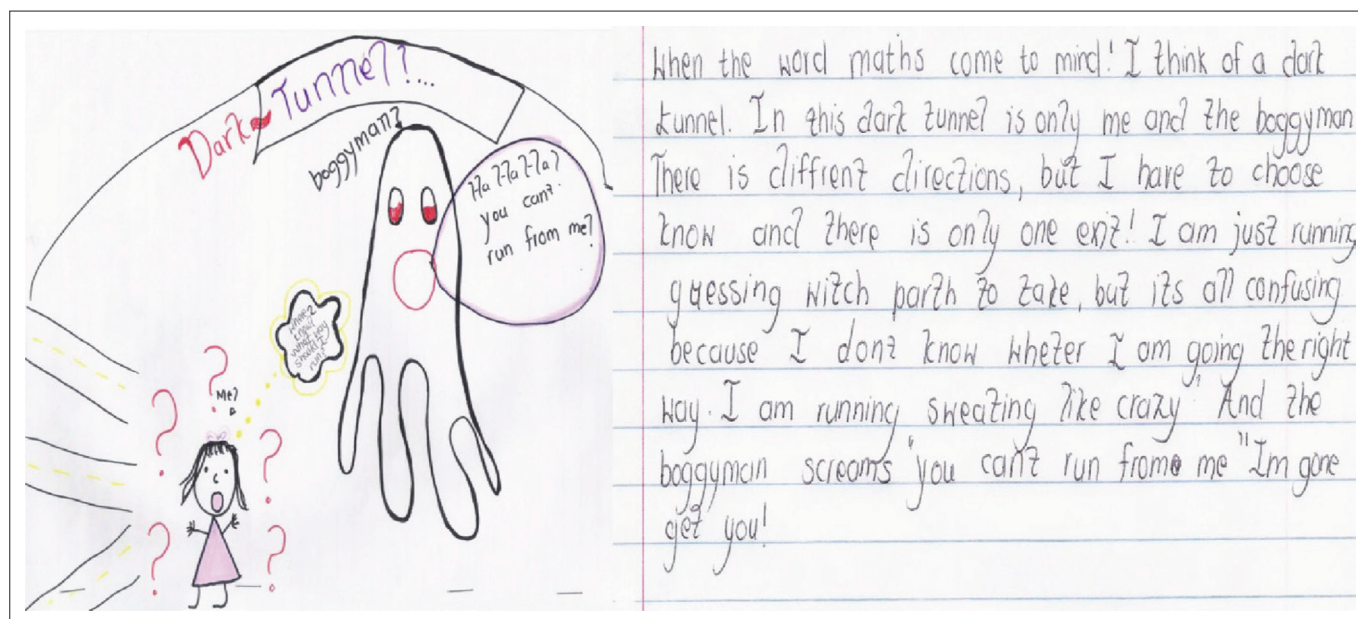 Dark Tunnel!...
boggyman
Ha Ha Ha!
you can't
run from me!
What way
should I
run?
Me?
? ? ? ? ?
When the word maths come to mind! I think of a dark
tunnel. In this dark tunnel is only me and the boggyman
There is diffrent directions, but I have to choose
know and there is only one exit! I am just running
guessing witch parth to take, but its all confusing
because I dont know wheter I am going the right
way. I am running sweating like crazy! And the
boggyman screams "you can't run from me" I'm gone
get you!